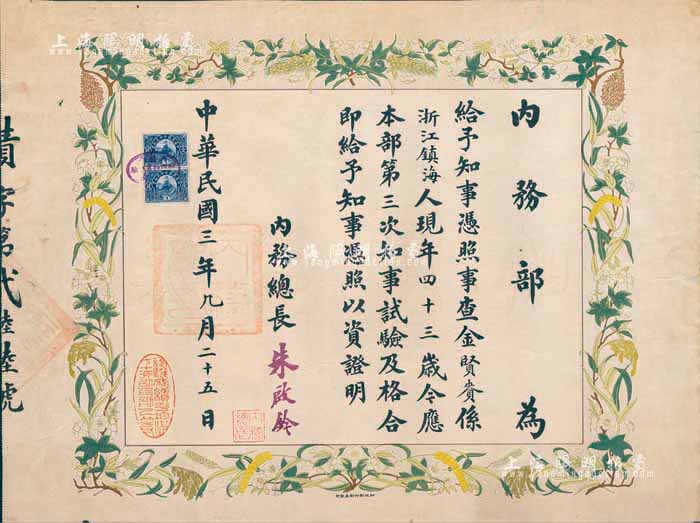 內務部為
給予知事憑照事查金賢寀係
浙江鎮海人現年四十三歲今應
本部第三次知事試驗及格合
即給予知事憑照以資證明
內務總長朱啟鈐
中華民國三年九月二十五日
字第弍陸陸號
上海陽明拍賣
上海陽明拍賣
上海陽明拍賣